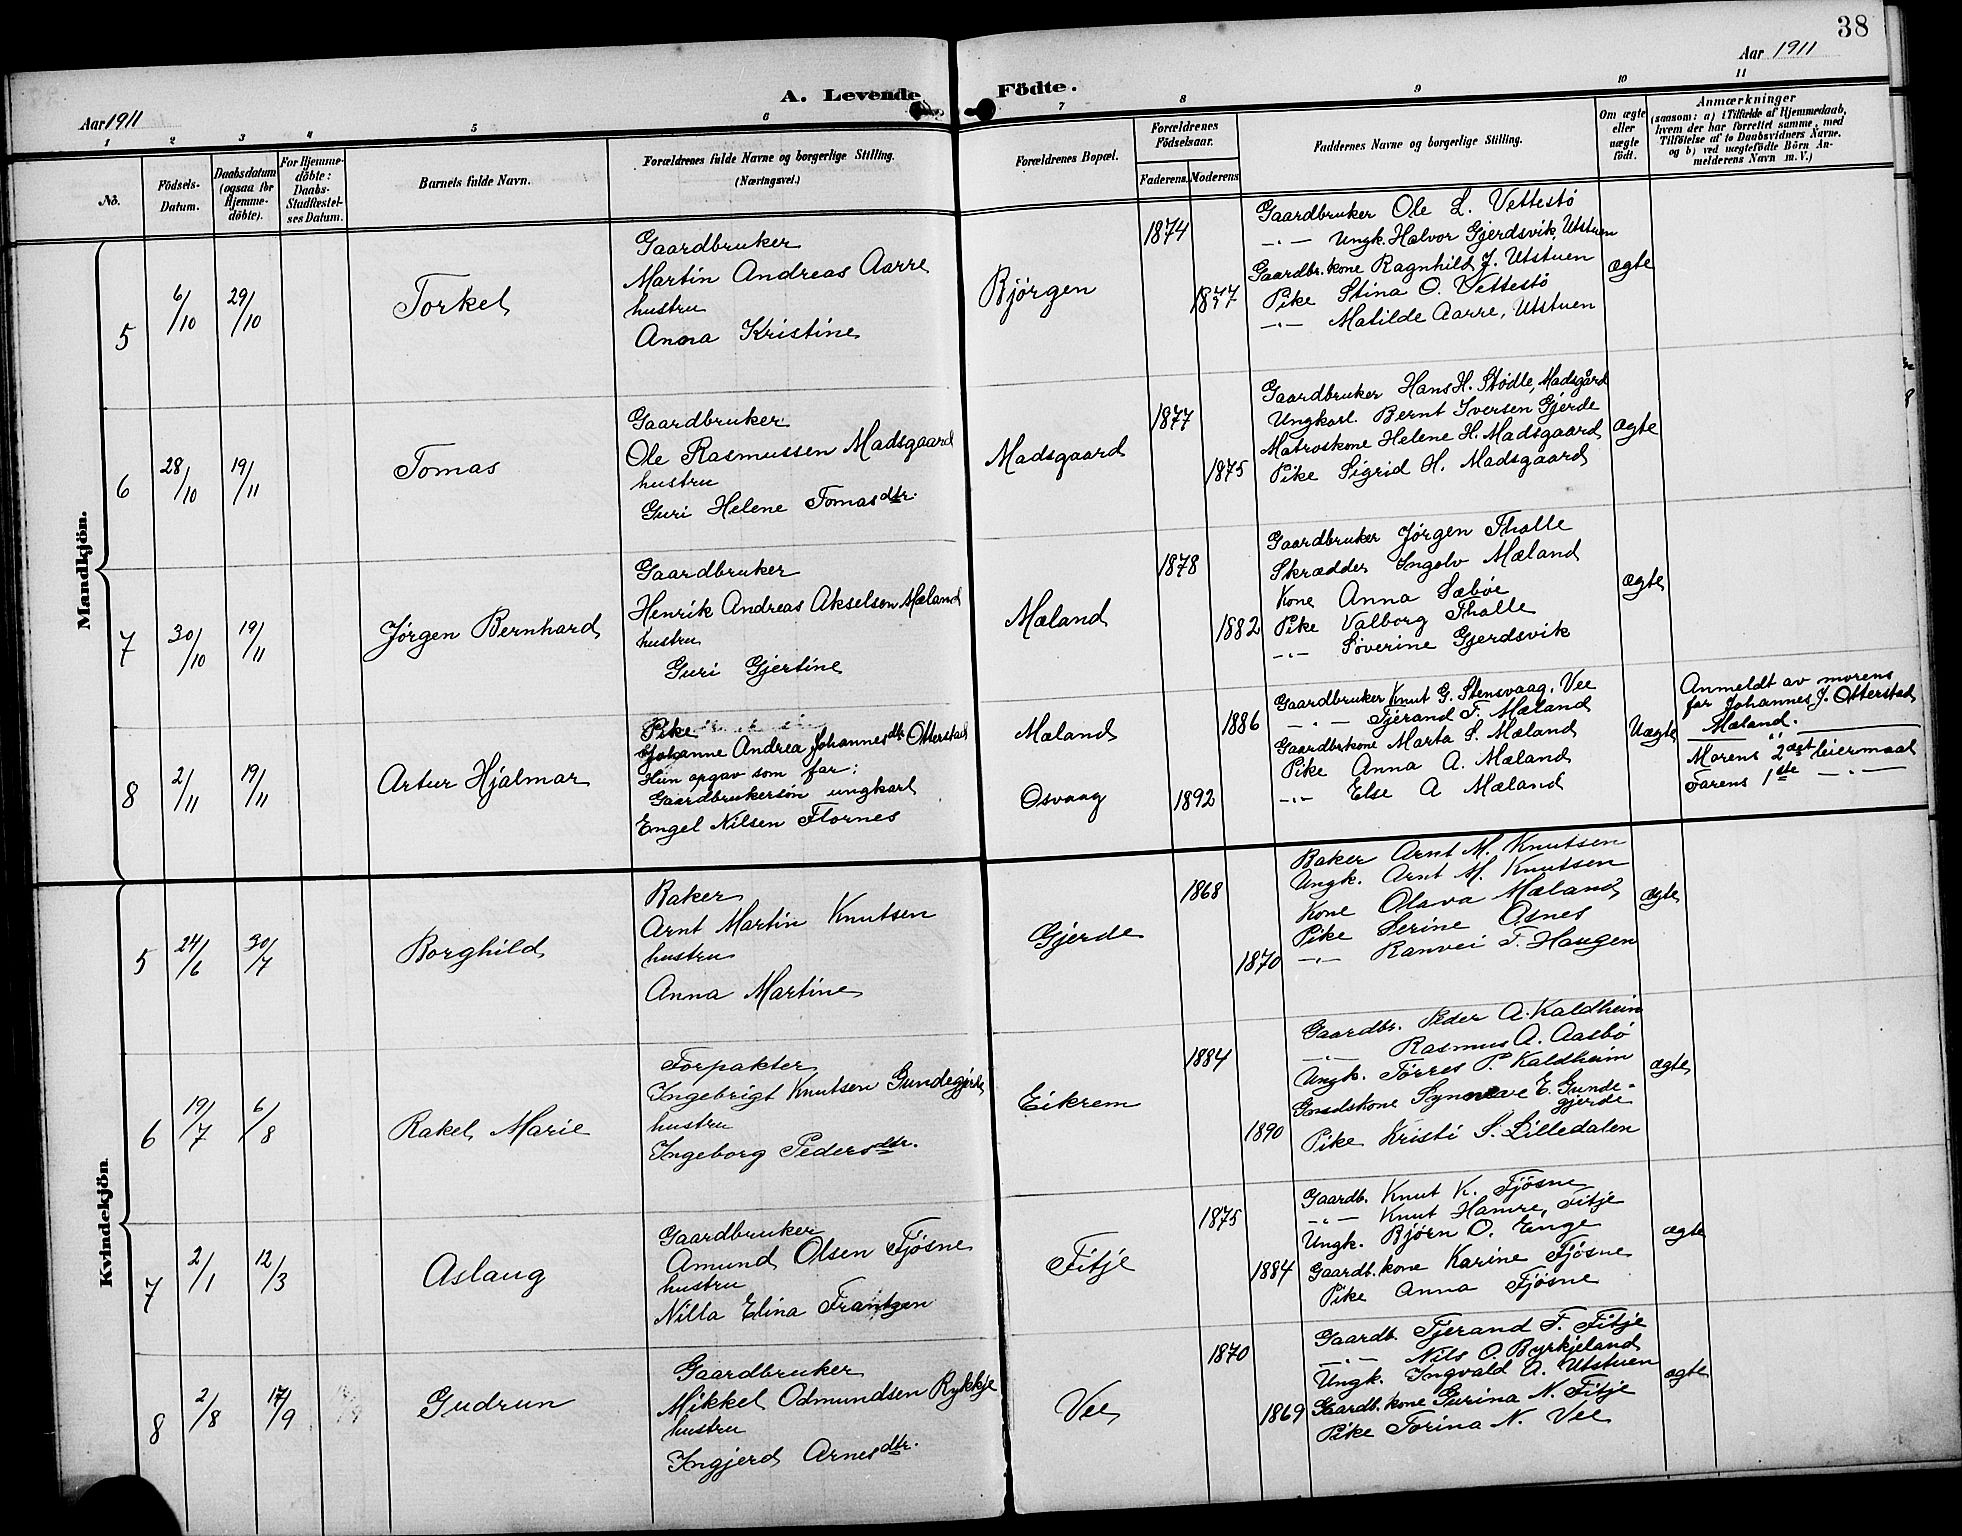 38
Aar 1911
Aar 1911
A. Levende Födte.
1 2 3 4 5 6 7 8 9 10 11
No.
Födsels-Datum.
Daabsdatum (ogsaa for Hjemme-döbte).
For Hjemme-döbte: Daabs-Stadfæstel-ses Datum.
Barnets fulde Navn.
Forældrenes fulde Navne og borgerlige Stilling.
(Næringsvei.)
Forældrenes Bopæl.
Forældrenes Födselsaar.
Faderens. Moderens
Faddernes Navne og borgerlige Stilling.
Om ægte eller uægte födt.
Anmærkninger
(saasom: a) i Tilfælde af Hjemmedaab,
hvem der har forrettet samme, med
Tilföielse af to Daabsvidners Navne.
og b) ved uægtefödte Börn An-
melderens Navn m. V.)
Mandkjön.
5 6/10 29/10 Torkel
Gaardbruker
Martin Andreas Aarre
hustru
Anna Kristine
Bjørgen
1874
1877
Gaardbruker Ole L. Vettestø
-"- Ungk. Halvor Gjerdsvik, Utstuen
Gaardbr. kone Ragnhild J. Utstuen
Pike Stina O. Vettestø
-"- Matilde Aarre, Utstuen
ægte
6 28/10 19/11 Tomas
Gaardbruker
Ole Rasmussen Madsgaard
hustru
Guri Helene Tomasdtr.
Madsgaard
1877
1875
Gaardbruker Hans H. Stødle, Madsgård
Ungkarl Bernt Iversen Gjerde
Matroskone Helene H. Madsgaard
Pike Sigrid H. Madsgaard
ægte
7 30/10 19/11 Jørgen Bernhard
Gaardbruker
Henrik Andreas Akselsen Mæland
hustru
Guri Gjertine
Mæland
1878
1882
Gaardbruker Jørgen Tholle
Skrædder Ingolv Mæland
Kone Anna Sæbøe
Pike Valborg Tholle
-"- Søverine Gjerdsvik
ægte
8 2/11 19/11 Artur Hjalmar
Pike
Johanne Andrea Johannesdtr Otterstad
Hun opgav som far:
Gaardbrukersøn ungkarl
Engel Nilsen Flornes
Mæland
Osvaag
1886
1892
Gaardbruker Knut G. Stensvaag, Vee
-"- Tjerand T. Mæland
Gaardbrkone Marta S. Mæland
Pike Anna A. Mæland
-"- Else A Mæland
Uægte
Anmeldt av morens
far Johannes J. Otterstad
Mæland.
Morens 2det leiermaal
Farens 1ste -"-
Kvindekjön
5 24/6 30/7 Borghild
Baker
Arnt Martin Knutsen
hustru
Anna Martine
Gjerde
1868
1870
Baker Arnt M. Knutsen
Ungk. Arnt M. Knutsen
Kone Olava Mæland
Pike Serine Osnes
-"- Ranvei T. Haugen
ægte
6 19/7 6/8 Rakel Marie
Forpakter
Ingebrigt Knutsen Gundegjerde
hustru
Ingeborg Pedersdtr.
Eikrem
1884
1890
Gaardbr. Peder A. Kaldheim
-"- Rasmus A. Aasbø
Ungk. Tørres P. Kaldheim
Synneve E. Gunde-
gjerde
Pike Kristi S. Lilledalen
ægte
7 2/1 12/3 Aslaug
Gaardbruker
Amund Olsen Fjøsne
hustru
Nilla Elina Frantzen
Fitje
1875
1884
Gaardb. Knut K. Fjøsne
-"- Knut Hamre, Fitje
Ungk. Bjørn O. Enge
Gaardb. kone Karine Fjøsne
Pike Anna Fjøsne
ægte
8 2/8 17/9 Gudrun
Gaardbruker
Mikkel Odmundsen Rykkje
hustru
Ingjerd Arnesdtr.
Vee
1870
1869
Gaardb. Tjerand T. Fitje
-"- Nils O. Byrkjeland
Ungk. Ingvald A. Utstuen
Gaardb. kone Gurina N. Fitje
Pike Torina N. Vee
ægte